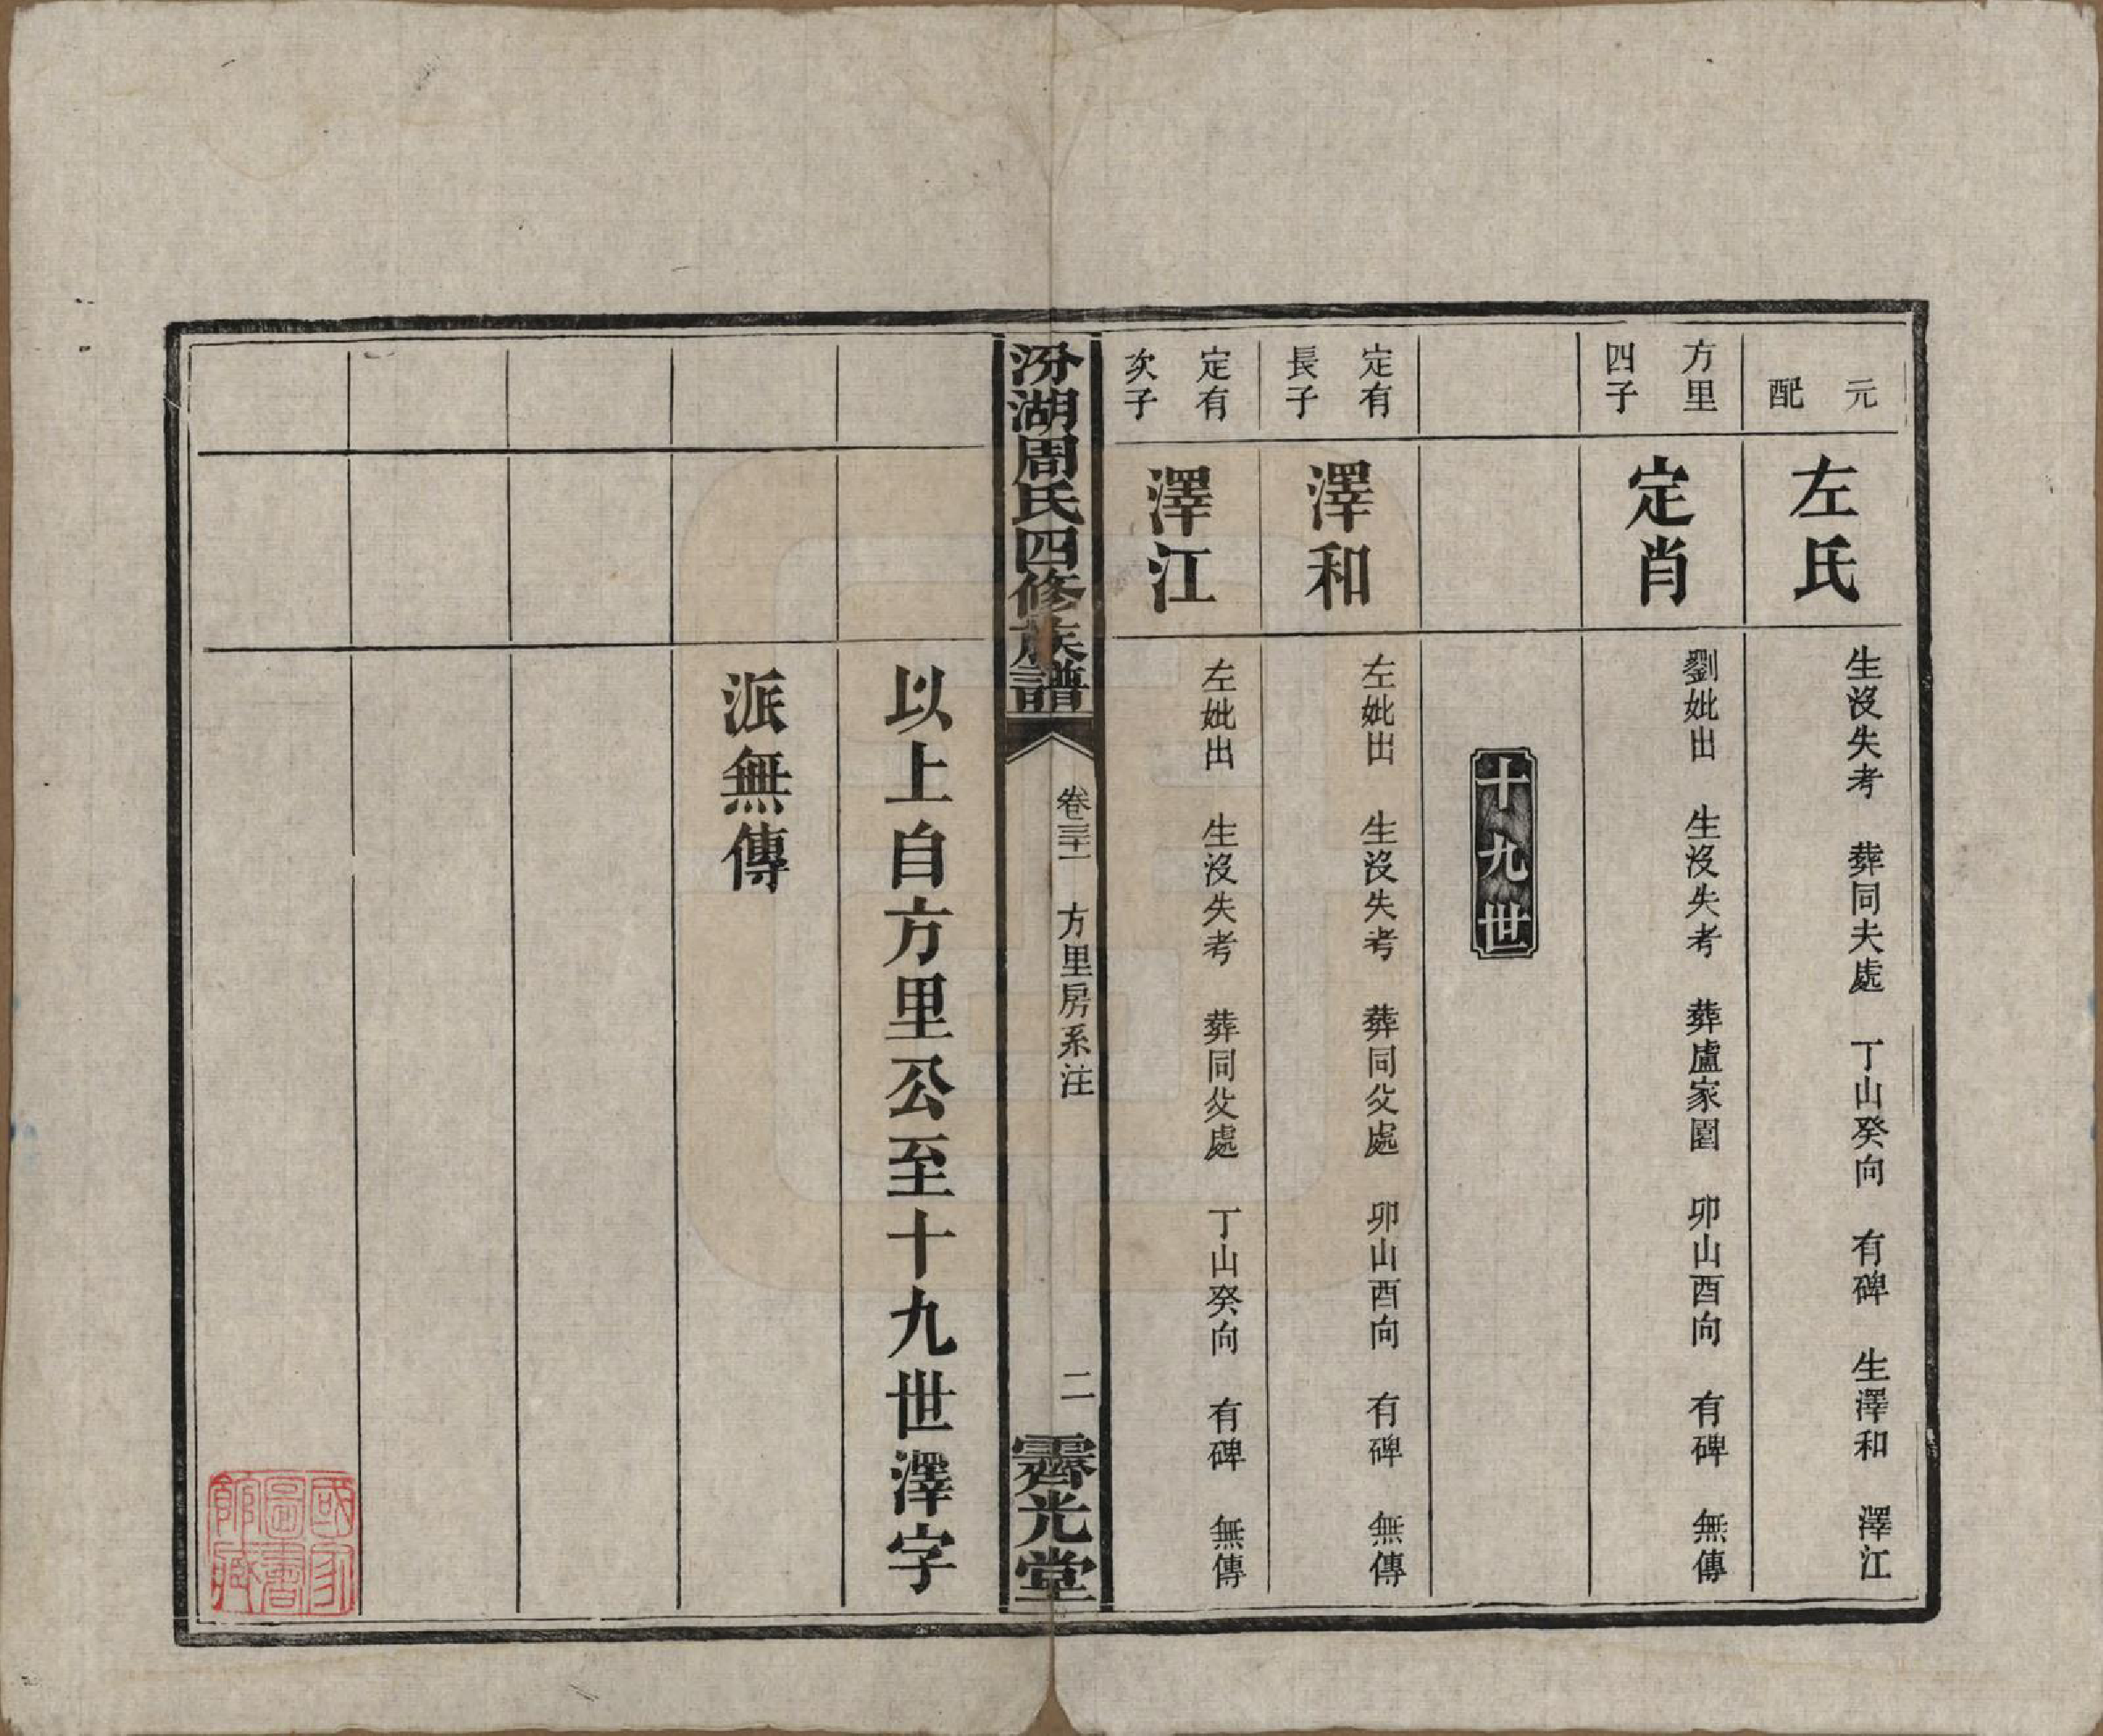 元配
左氏
生沒失考　葬同夫處　丁山癸向　有碑　生澤和　澤江
方里四子
定肖
劉妣出　生沒失考　葬盧家園　卯山酉向　有碑　無傳
十九世
定有長子
澤和
左妣出　生沒失考　葬同父處　卯山酉向　有碑　無傳
定有次子
澤江
左妣出　生沒失考　葬同父處　丁山癸向　有碑　無傳
汾湖周氏四修族譜
卷三十一　方里房系注
二
霽光堂
以上自方里公至十九世澤字
派無傳
國家圖書館藏